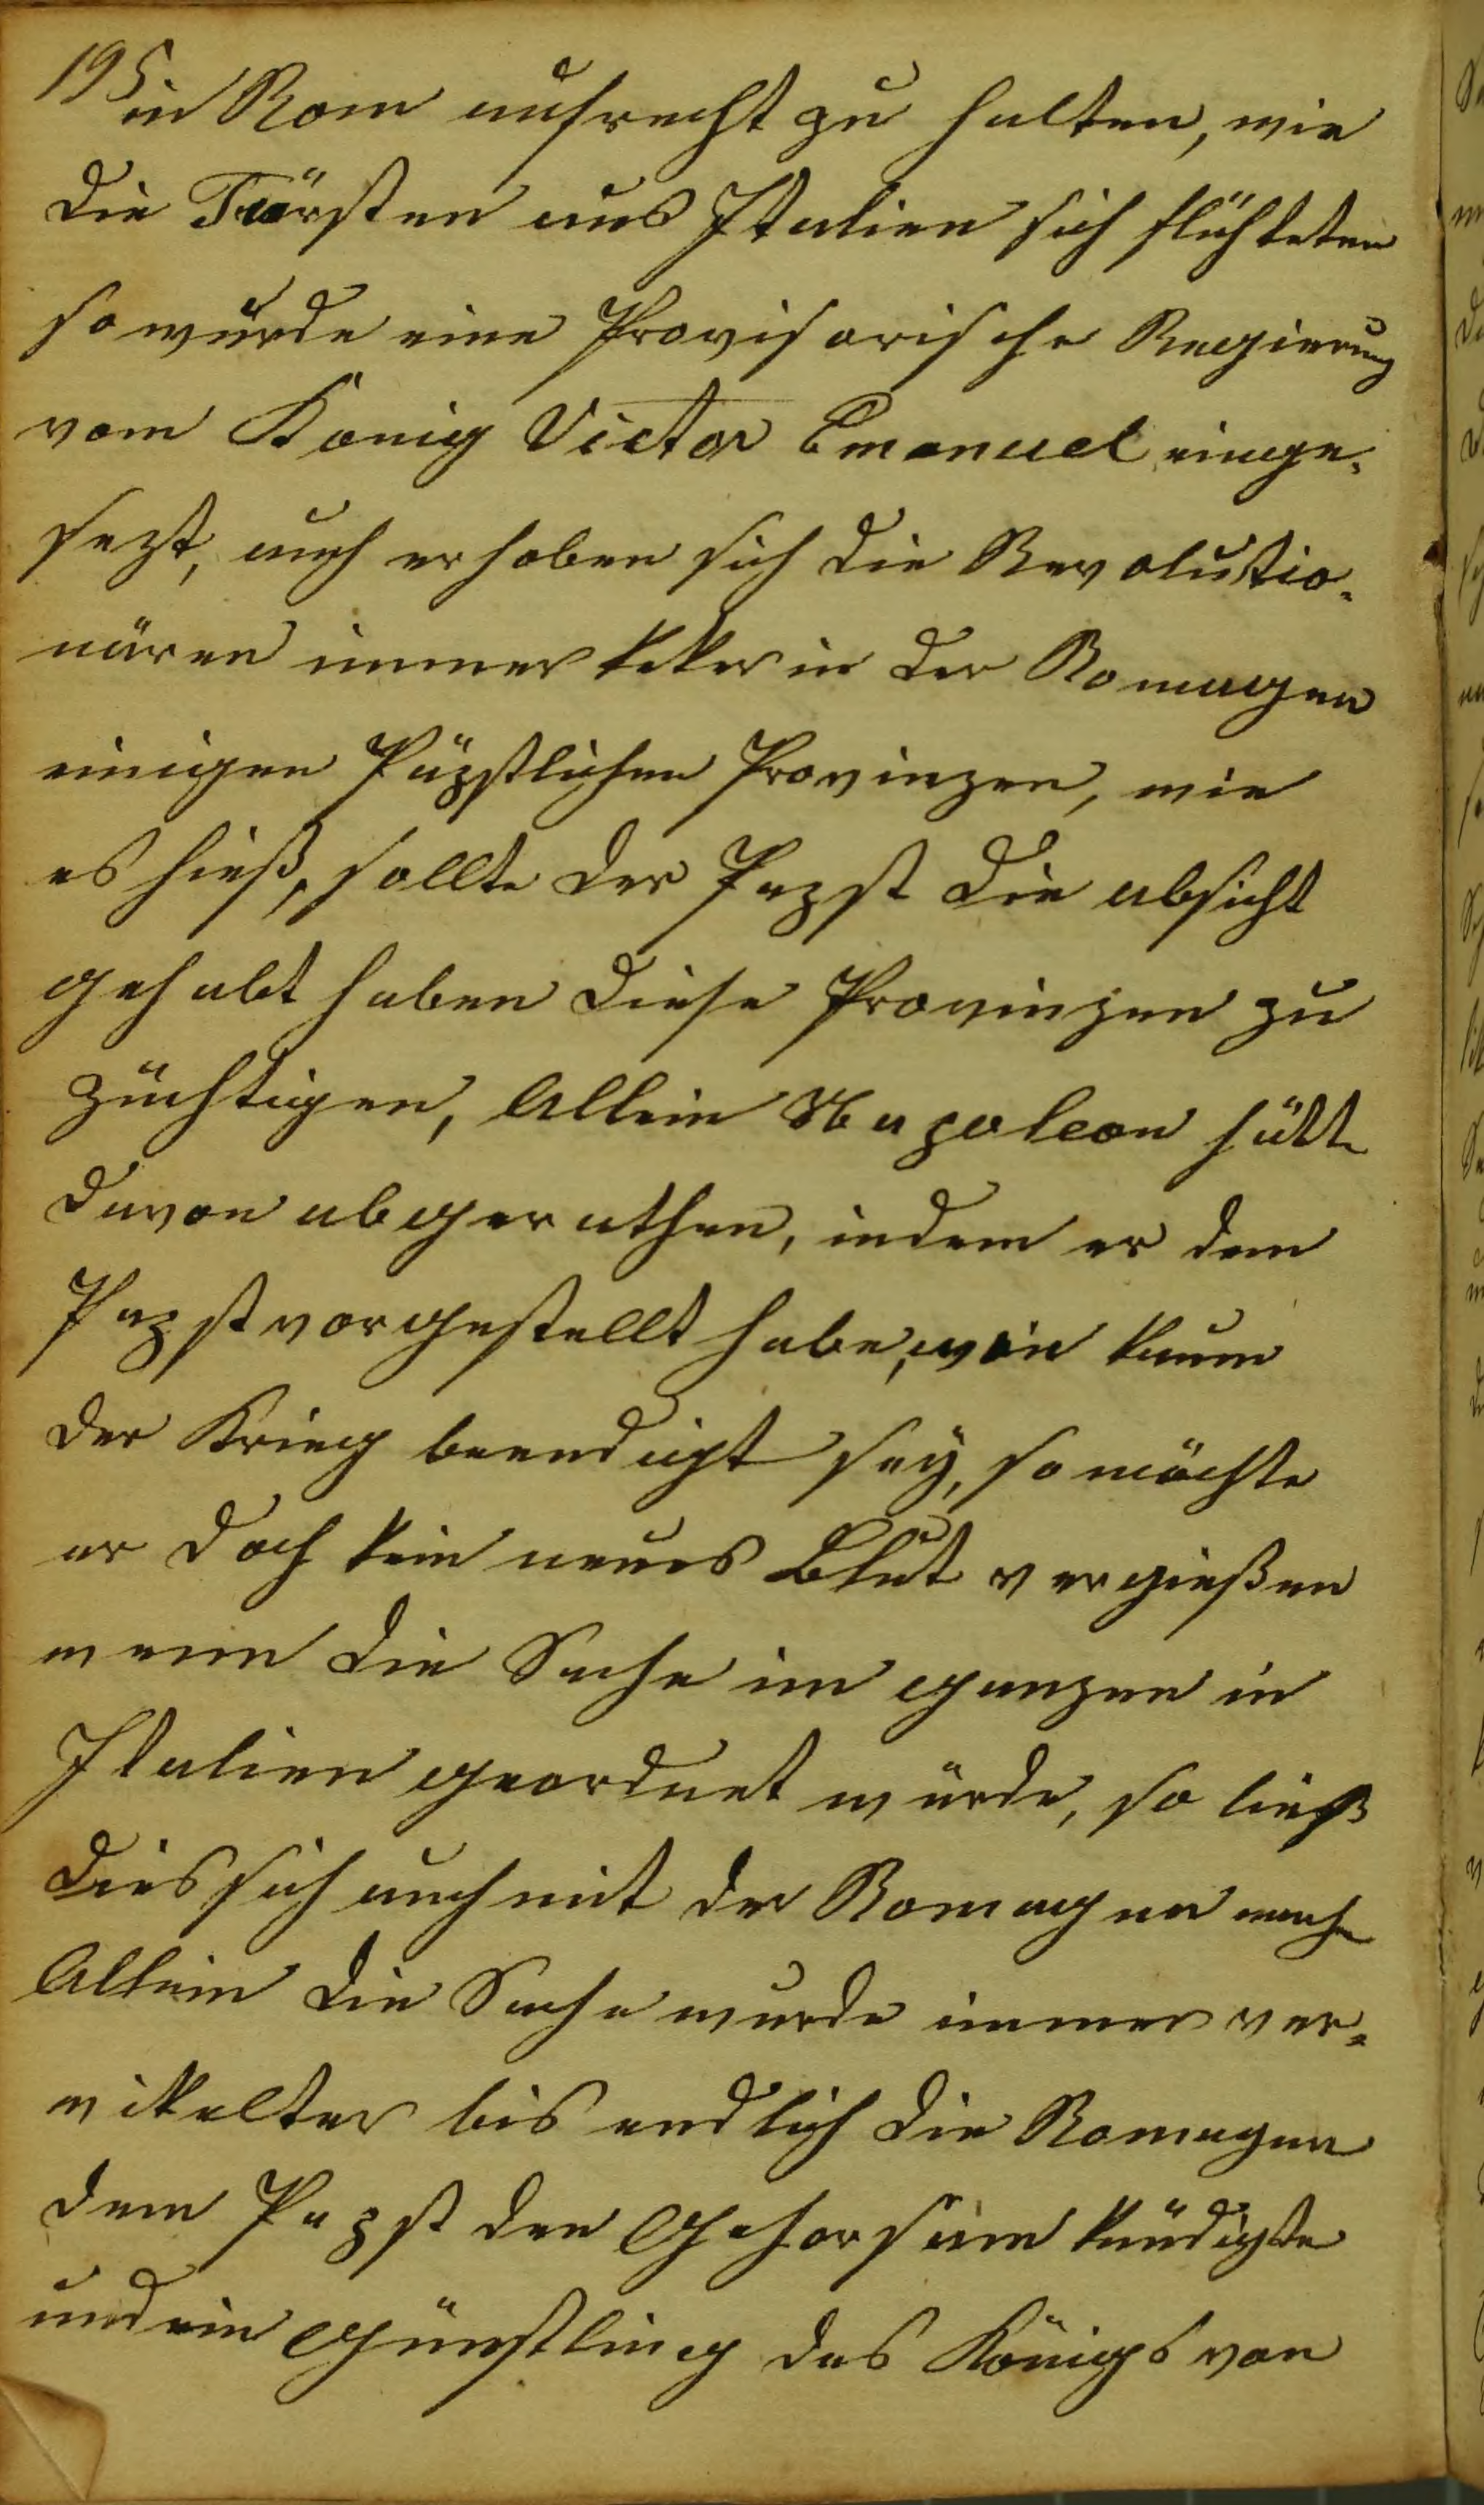 195.
in Rom aufrecht zu halten, wie
die Fürsten aus Italien sich flühteten
so wurde eine Provisorische Regierung
vom König Victor Emanuel einge-
sezt, auch erhoben sich die Revolutio-
nären immer keker in der Romagna
einigen Päpstlichen Provinzen, wie
es hieß, sollte der Papst die absicht
gehabt haben diese Provinzen zu
züchtigen, Allein Napoleon hätte
davon abgerathen, indem er dem
Papst vorgestellt habe, wie kaum
der Krieg beendigt sey, so möchte
er doch kein neues Blut vergießen
wenn die Sache im ganzen in
Italien geordnet würde, so ließ
dies sich auch mit der Romagna mache
Allein die Sache wurde immer ver-
wikelter bis endlich die Romagna
dem Papst den Gehorsam kündigte
und ein Günstling des Königs von